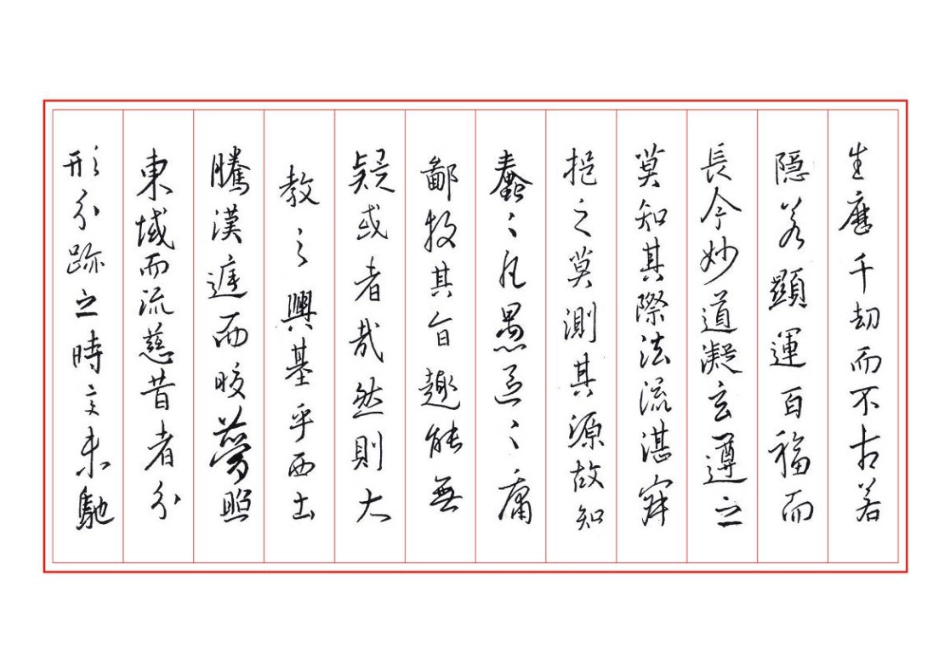 生歷千劫而不古若
隱若顯運百福而
長今妙道凝玄遵之
莫知其際法流湛寂
挹之莫測其源故知
蠢〻凡愚區〻庸
鄙投其旨趣能無
疑或者哉然則大
教之興基乎西土
騰漢庭而皎夢照
東域而流慈昔者分
形分跡之時言未馳